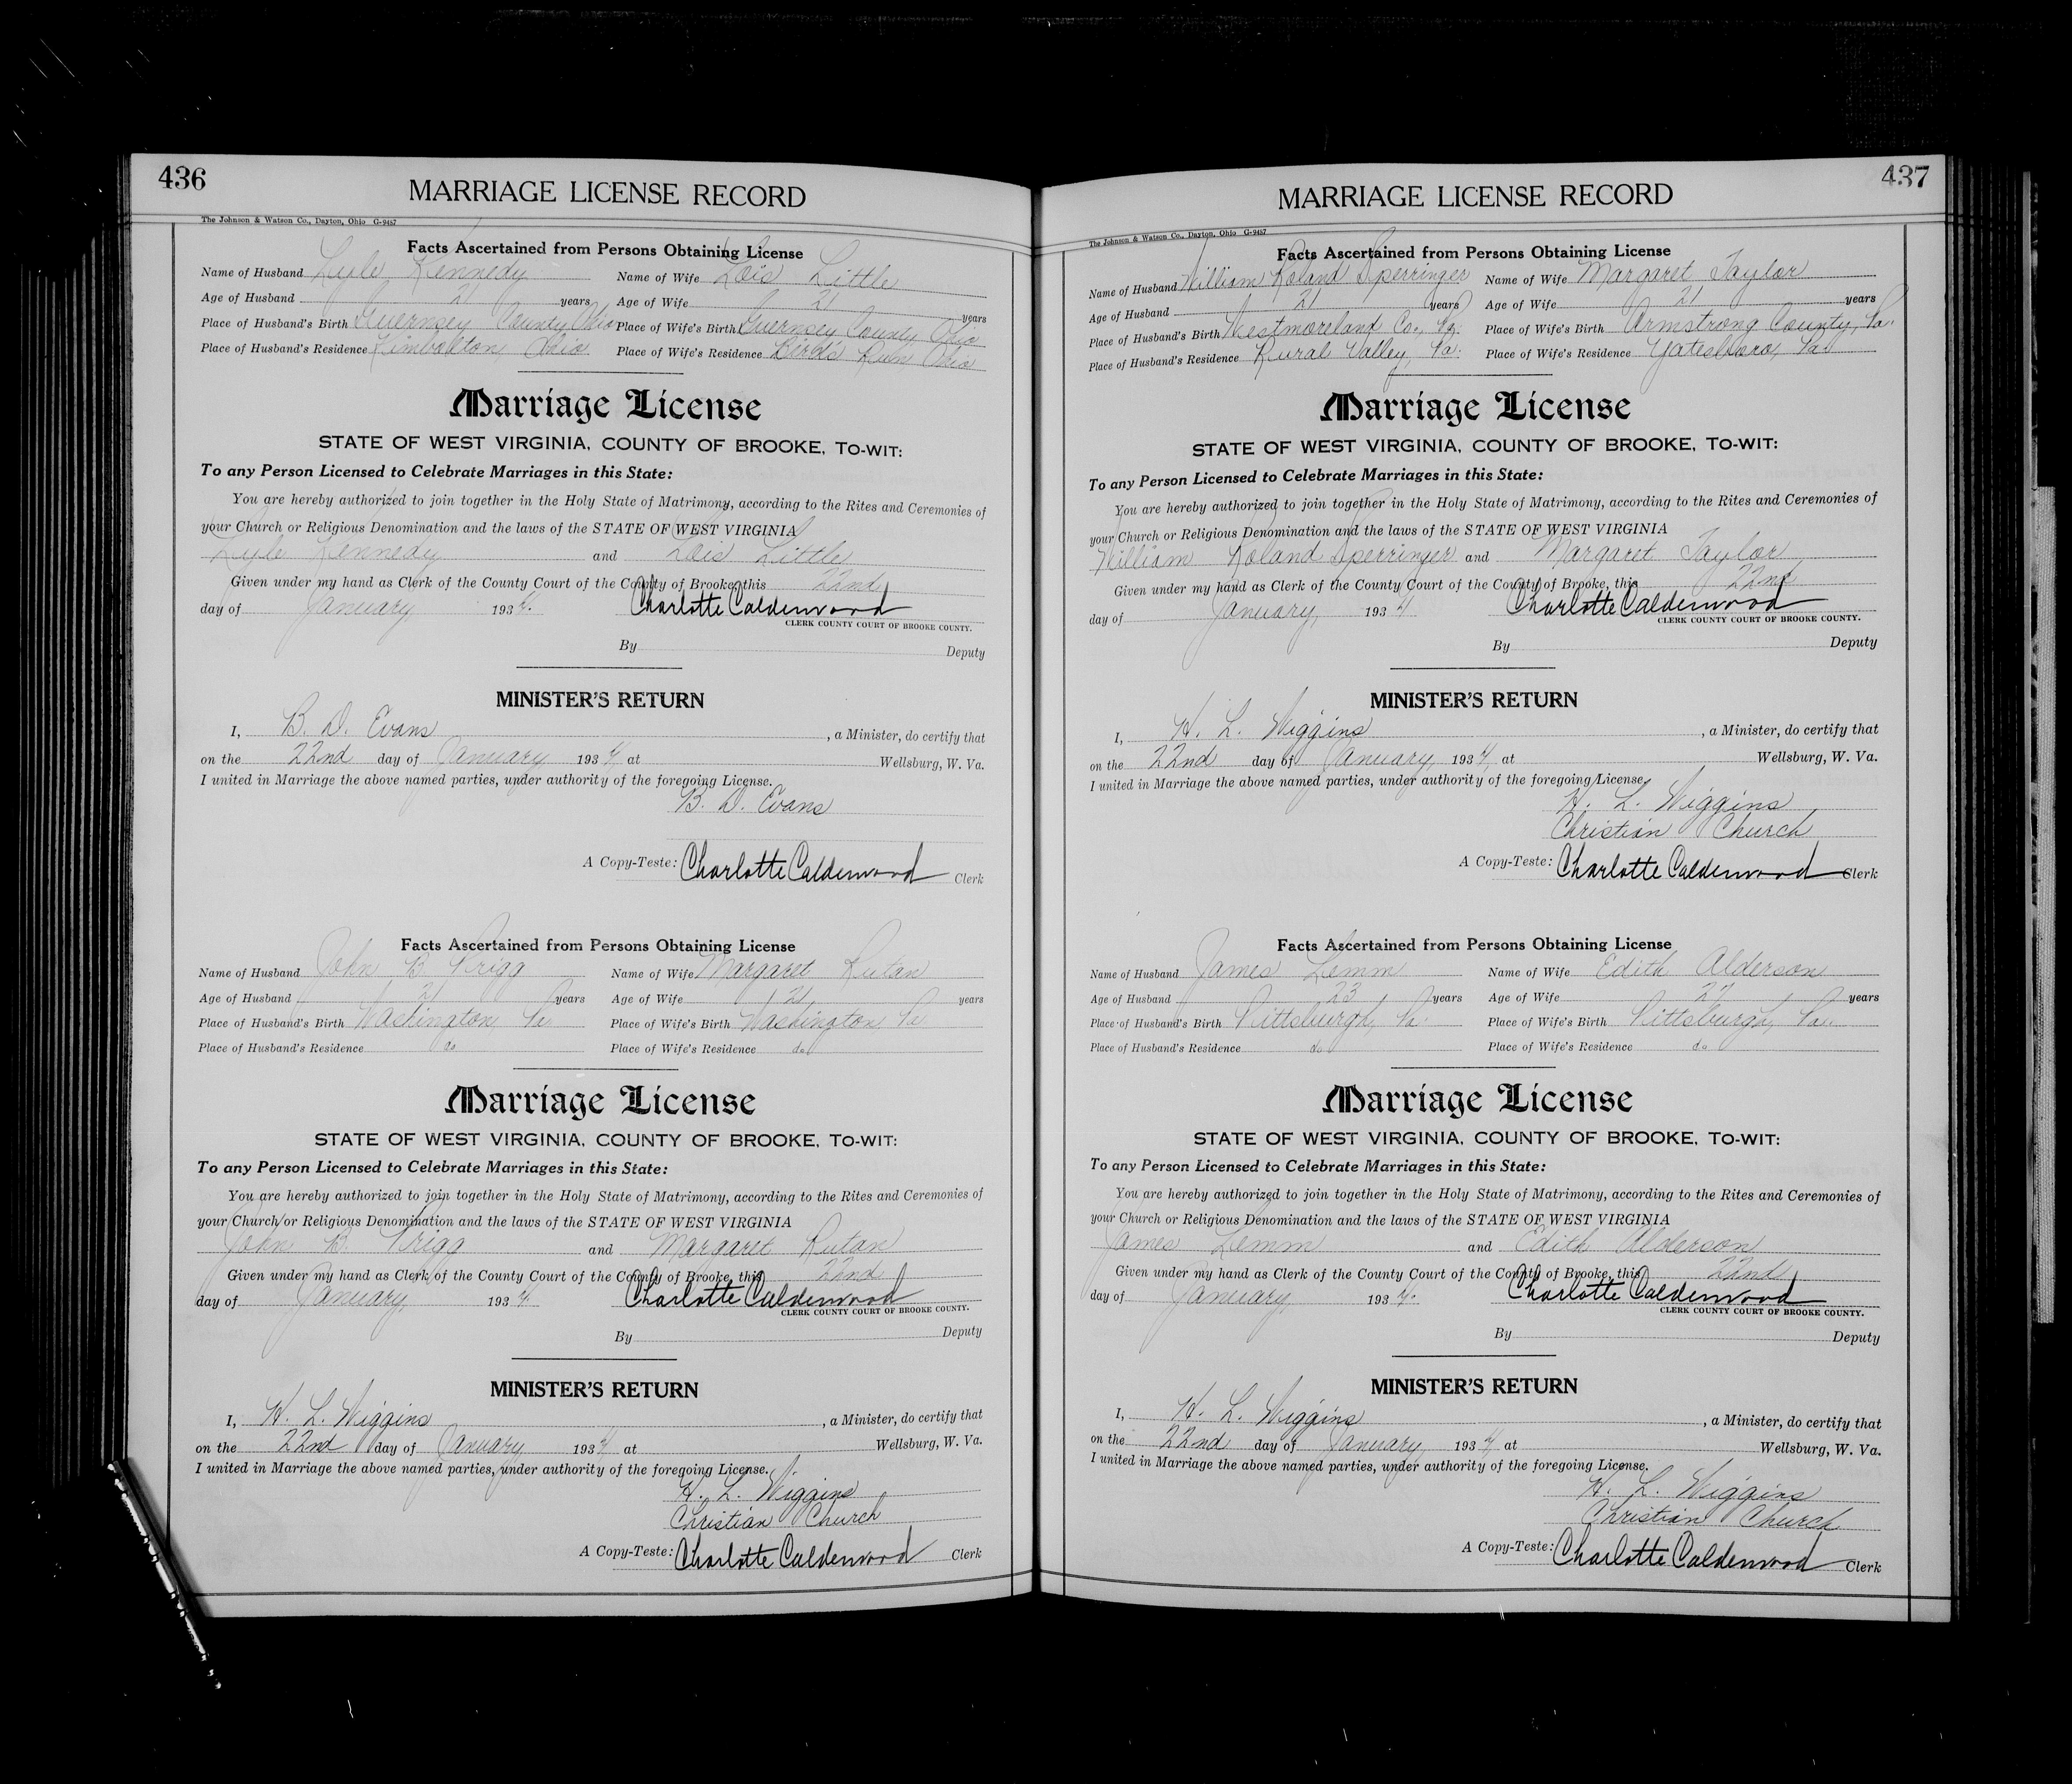 436
MARRIAGE LICENSE RECORD
The Johnson & Watson Co., Dayton, Ohio G-9457
Facts Ascertained from Persons Obtaining License
Name of Husband Lyle Kennedy Name of Wife Lois Little
Age of Husband 21 years Age of Wife 21 years
Place of Husband's Birth Guernsey County Ohio Place of Wife's Birth Guernsey County Ohio
Place of Husband's Residence Kimbolton, Ohio Place of Wife's Residence Bird's Run Ohio
Marriage License
STATE OF WEST VIRGINIA, COUNTY OF BROOKE, TO-WIT:
To any Person Licensed to Celebrate Marriages in this State:
You are hereby authorized to join together in the Holy State of Matrimony, according to the Rites and Ceremonies of
your Church or Religious Denomination and the laws of the STATE OF WEST VIRGINIA
Lyle Kennedy and Lois Little
Given under my hand as Clerk of the County Court of the County of Brooke, this 22nd
day of January, 1934. Charlotte Calderwood
CLERK COUNTY COURT OF BROOKE COUNTY.
By Deputy
MINISTER'S RETURN
I, B. D. Evans , a Minister, do certify that
on the 22nd day of January 1934 at Wellsburg, W. Va.
I united in Marriage the above named parties, under authority of the foregoing License.
B. D. Evans
A Copy-Teste: Charlotte Calderwood Clerk
Facts Ascertained from Persons Obtaining License
Name of Husband John B. Prigg Name of Wife Margaret Rutan
Age of Husband 21 years Age of Wife 21 years
Place of Husband's Birth Washington, Pa. Place of Wife's Birth Washington, Pa.
Place of Husband's Residence do Place of Wife's Residence do
Marriage License
STATE OF WEST VIRGINIA, COUNTY OF BROOKE, TO-WIT:
To any Person Licensed to Celebrate Marriages in this State:
You are hereby authorized to join together in the Holy State of Matrimony, according to the Rites and Ceremonies of
your Church or Religious Denomination and the laws of the STATE OF WEST VIRGINIA
John B. Prigg and Margaret Rutan
Given under my hand as Clerk of the County Court of the County of Brooke, this 22nd
day of January, 1934 Charlotte Calderwood
CLERK COUNTY COURT OF BROOKE COUNTY.
By Deputy
MINISTER'S RETURN
I, H. L. Wiggins , a Minister, do certify that
on the 22nd day of January 1934 at Wellsburg, W. Va.
I united in Marriage the above named parties, under authority of the foregoing License.
H. L. Wiggins
Christian Church
A Copy-Teste: Charlotte Calderwood Clerk
437
MARRIAGE LICENSE RECORD
The Johnson & Watson Co., Dayton, Ohio G-9457
Facts Ascertained from Persons Obtaining License
Name of Husband William Roland Sperringer Name of Wife Margaret Taylor
Age of Husband 21 years Age of Wife 21 years
Place of Husband's Birth Westmoreland Co., Pa. Place of Wife's Birth Armstrong County, Pa.
Place of Husband's Residence Rural Valley, Pa. Place of Wife's Residence Yatesboro, Pa.
Marriage License
STATE OF WEST VIRGINIA, COUNTY OF BROOKE, TO-WIT:
To any Person Licensed to Celebrate Marriages in this State:
You are hereby authorized to join together in the Holy State of Matrimony, according to the Rites and Ceremonies of
your Church or Religious Denomination and the laws of the STATE OF WEST VIRGINIA
William Roland Sperringer and Margaret Taylor
Given under my hand as Clerk of the County Court of the County of Brooke, this 22nd
day of January, 1934 Charlotte Calderwood
CLERK COUNTY COURT OF BROOKE COUNTY.
By Deputy
MINISTER'S RETURN
I, H. L. Wiggins , a Minister, do certify that
on the 22nd day of January, 1934, at Wellsburg, W. Va.
I united in Marriage the above named parties, under authority of the foregoing License.
H. L. Wiggins
Christian Church
A Copy-Teste: Charlotte Calderwood Clerk
Facts Ascertained from Persons Obtaining License
Name of Husband James Lemm Name of Wife Edith Alderson
Age of Husband 23 years Age of Wife years
Place of Husband's Birth Pittsburgh, Pa. Place of Wife's Birth Pittsburgh, Pa.
Place of Husband's Residence do Place of Wife's Residence do
Marriage License
STATE OF WEST VIRGINIA, COUNTY OF BROOKE, TO-WIT:
To any Person Licensed to Celebrate Marriages in this State:
You are hereby authorized to join together in the Holy State of Matrimony, according to the Rites and Ceremonies of
your Church or Religious Denomination and the laws of the STATE OF WEST VIRGINIA
James Lemm and Edith Alderson
Given under my hand as Clerk of the County Court of the County of Brooke, this 22nd
day of January, 1934. Charlotte Calderwood
CLERK COUNTY COURT OF BROOKE COUNTY.
By Deputy
MINISTER'S RETURN
I, H. L. Wiggins , a Minister, do certify that
on the 22nd day of January, 1934 at Wellsburg, W. Va.
I united in Marriage the above named parties, under authority of the foregoing License.
H. L. Wiggins
Christian Church
A Copy-Teste: Charlotte Calderwood Clerk